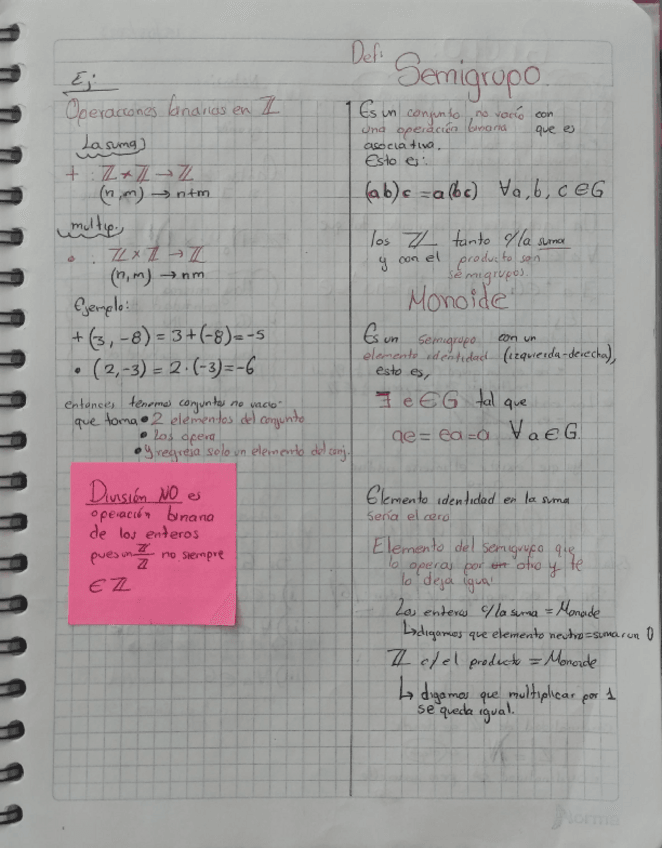 Ej:
Operaciones binarias en ℤ
La suma
+ : ℤ × ℤ → ℤ
(n,m) → n+m
multip.
• : ℤ × ℤ → ℤ
(n,m) → nm
Ejemplo:
+(3, -8) = 3+(-8)=-5
• (2,-3) = 2·(-3)=-6
entonces tenemos conjuntos no vacio
que toma • 2 elementos del conjunto
• Los opera
• y regresa solo un elemento del conj.
División NO es
operación binaria
de los enteros
pues un ℤ/ℤ no siempre
∈ ℤ
Def:
Semigrupo
Es un conjunto no vacío con
una operación binaria que es
asociativa.
Esto es:
(ab)c = a(bc) ∀a,b,c ∈ G
los ℤ tanto c/la suma
y con el producto son
semigrupos.
Monoide
Es un semigrupo con un
elemento identidad (izquierda-derecha),
esto es,
∃ e ∈ G tal que
ae = ea = a ∀ a ∈ G
Elemento identidad en la suma
sería el cero
Elemento del semigrupo que
lo operas por otro y te
lo deja igual
Los enteros c/la suma = Monoide
↳ digamos que elemento neutro = suma con 0
ℤ c/el producto = Monoide
↳ digamos que multiplicar por 1
se queda igual.
Norma